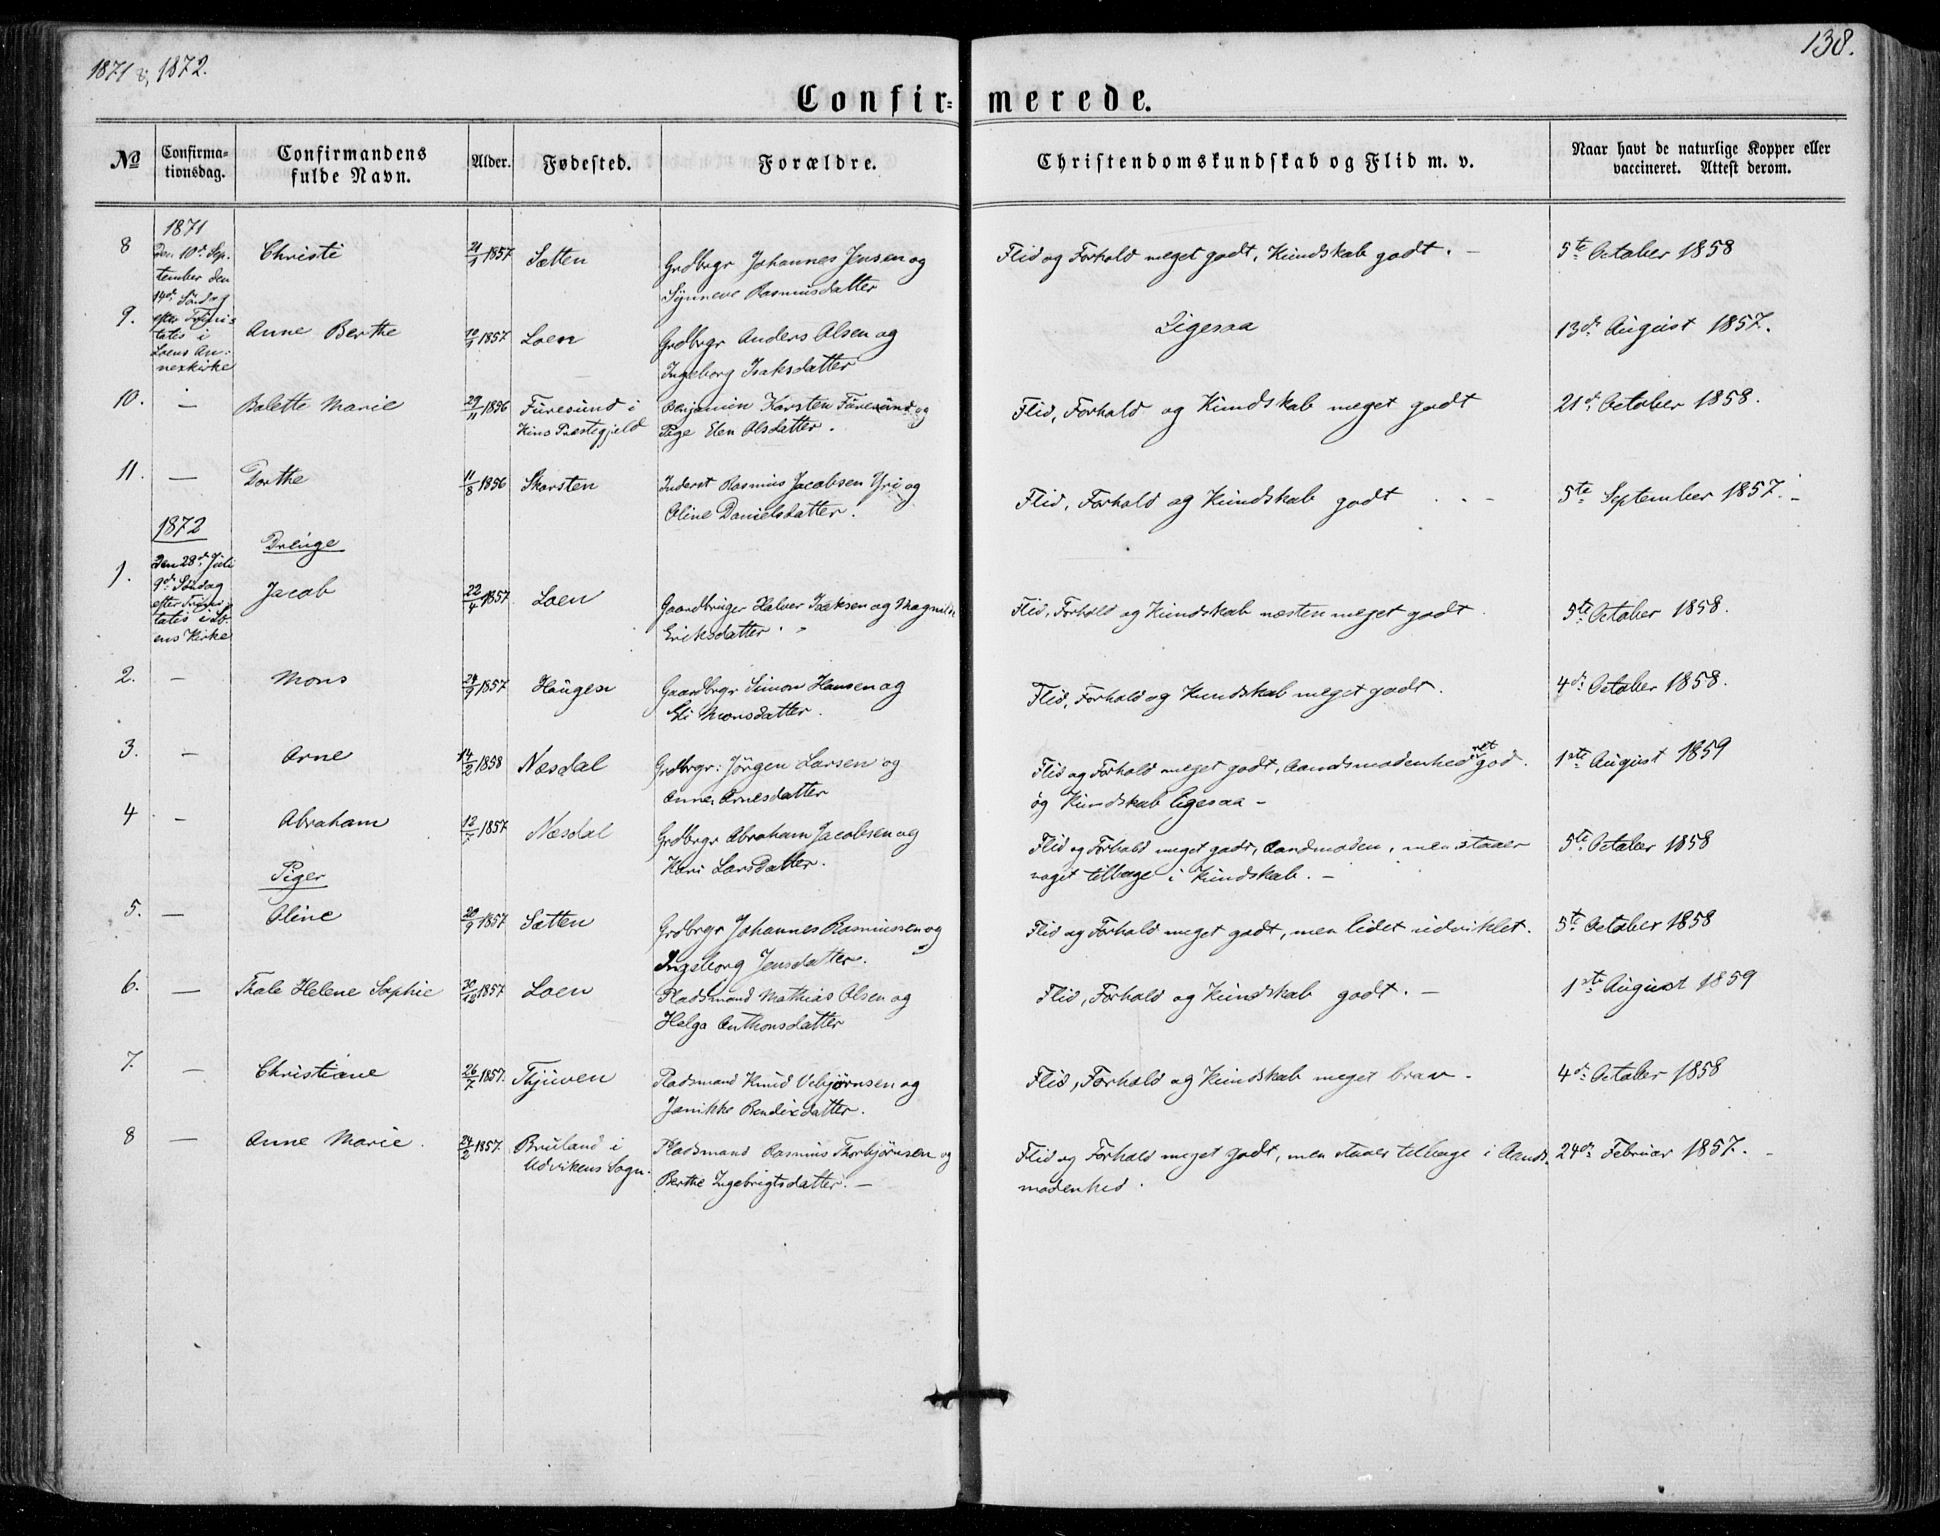 1871 & 1872.
138.
Confir= merede.
No Confirma-tionsdag. Confirmandens fulde Navn. Alder. Fødested. Forældre. Christendomskundskab og Flid m. v. Naar havt de naturlige Kopper eller vaccineret. Attest derom.
1871
8 Den 10de Sep- Christi 21/1 1857 Sætten Grdbrgr Johannes Jensen og Flid og Forhold meget godt, Kundskab godt. – 5te October 1858
tember den Synneve Rasmusdatter
14de Søndag
9. efter Trini= Anne Berthe 1857 Loen Grdbrgr Anders Olsen og Ligesaa 13de August 1857.
tatis i Ingeborg Isaksdatter
Loens An=
nexkirke
10. – Balette Marie 29/11 1856 Furesund i Benjamin Karsten Furesund og Flid, Forhold og Kundskab meget godt 21de October 1858.
Kins Præstegjeld Pige Elen Olsdatter.
11. – Dorthe 11/8 1856 Skarsten Inderst Rasmus Jacobsen Yri og Flid, Forhold og Kundskab godt 5te September 1857. –
Oline Danielsdatter.
1872
Drenge
1. Den 28de Juli Jacob 22/4 1857 Loen Gaardbruger Halvor Isaksen og Magnilde Flid, Forhold og Kundskab næsten meget godt 5te October 1858.
9de Søndag Eriksdatter.
efter Trini
tatis i
ens Kirke
2. – Mons 24/9 1857 Haugen Gaardbrgr Simon Hansen og Flid, Forhold og Kundskab meget godt. 4de October 1858.
Eli Monsdatter.
3. – Arne 14/2 1858 Næsdal Grdbrgr: Jørgen Larsen og Flid og Forhold meget godt, Aandsmodenhed ret god.. 1ste August 1859
Anne Arnesdatter og Kundskab ligesaa –
4 – Abraham 1857 Næsdal Grdbrgr Abraham Jacobsen og Flid og Forhold meget godt, Aandmoden, men staaer 5te October 1858
Kari Larsdatter. noget tilbage i Kundskab. –
Piger
5. – Oline 20/9 1857 Sætten Grdbrgr Johannes Rasmussen og Flid og Forhold meget godt, men lidet udviklet. 5te October 1858
Ingeborg Jensdatter.
6. – Thale Helene Sophie 30/12 1857 Loen Pladsmand Mathias Olsen og Flid, Forhold og Kundskab godt. – 1ste August 1859
Helga Anthonsdatter
7. – Christiane 26/7 1857. Thjuven Pladsmand Knud Vebjørnsen og Flid, Forhold og Kundskab meget brav. 4de October 1858
Janikke Bendixdatter.
8 – Anne Marie. 24/2 1857. Bruland i Pladsmand Rasmus Thorbjørnsen og Flid og Forhold meget godt, men staaer tilbage i Aands- 24de Februar 1857. –
Udvikens Sogn. Berthe Ingebrigtsdatter. – modenhed.